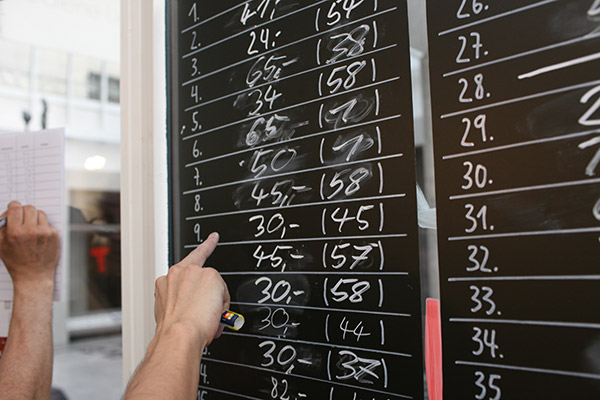 1.
2. 47,-
3. 24,- (54)
4. 65,- (38)
5. 34 (58)
6. 65,- (71)
7. 50 (71)
8. 45,- (58)
9. 30,- (45)
45,- (57)
30,- (58)
30,- (44)
30,- (37)
82,-
26.
27.
28.
29.
30.
31.
32.
33.
34.
35